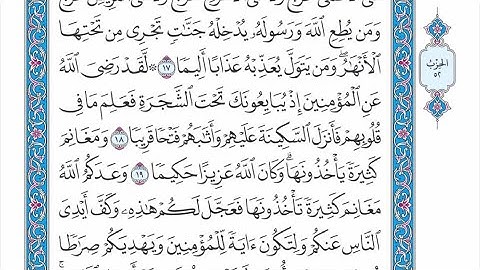 وَمَن يُطِعِ ٱللَّهَ وَرَسُولَهُۥ يُدْخِلْهُ جَنَّٰتٍ تَجْرِى مِن تَحْتِهَا
ٱلْأَنْهَٰرُ ۖ وَمَن يَتَوَلَّ يُعَذِّبْهُ عَذَابًا أَلِيمًا ١٧ ۞ لَّقَدْ رَضِىَ ٱللَّهُ
عَنِ ٱلْمُؤْمِنِينَ إِذْ يُبَايِعُونَكَ تَحْتَ ٱلشَّجَرَةِ فَعَلِمَ مَا فِى
قُلُوبِهِمْ فَأَنزَلَ ٱلسَّكِينَةَ عَلَيْهِمْ وَأَثَٰبَهُمْ فَتْحًا قَرِيبًا ١٨ وَمَغَانِمَ
كَثِيرَةً يَأْخُذُونَهَا ۗ وَكَانَ ٱللَّهُ عَزِيزًا حَكِيمًا ١٩ وَعَدَكُمُ ٱللَّهُ
مَغَانِمَ كَثِيرَةً تَأْخُذُونَهَا فَعَجَّلَ لَكُمْ هَٰذِهِۦ وَكَفَّ أَيْدِىَ
ٱلنَّاسِ عَنكُمْ وَلِتَكُونَ ءَايَةً لِّلْمُؤْمِنِينَ وَيَهْدِيَكُمْ صِرَٰطًا
الحزب
٥٢